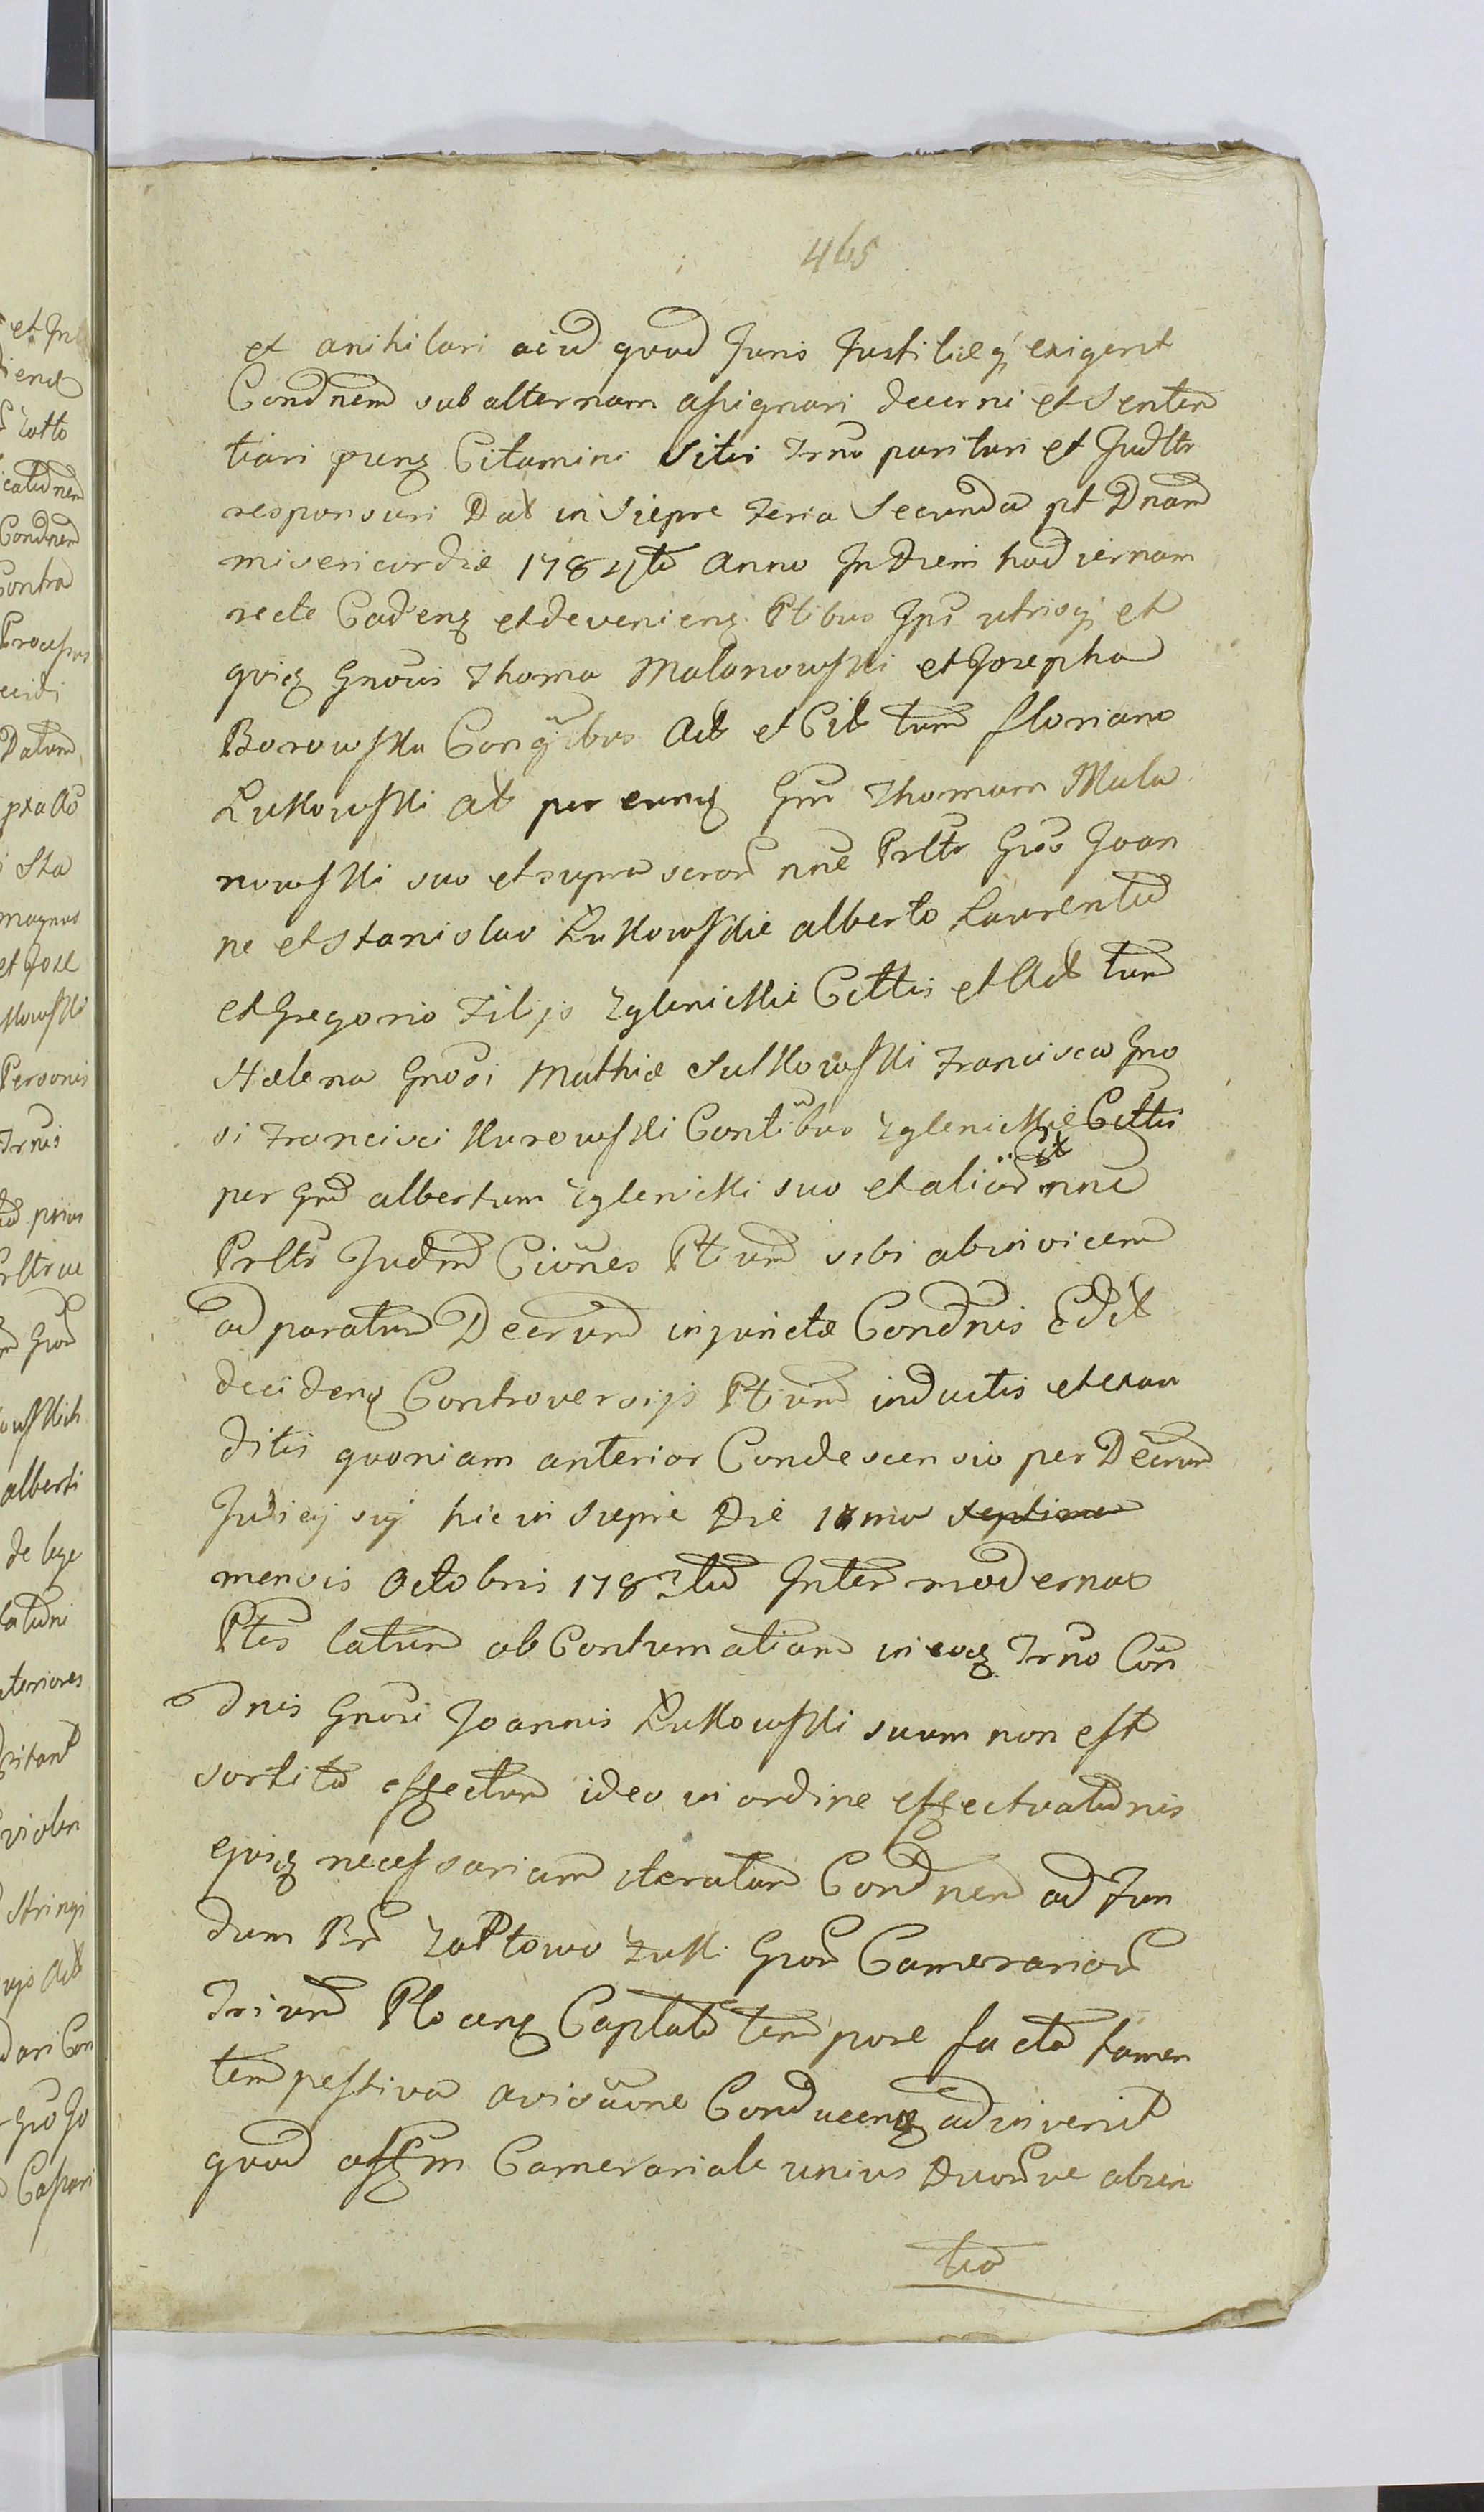 465
et anihilari aliud quod Juris Justitiæq exigerit
Condnem subalternam assignari decerni et Senten
tiari præns Citamini Sitis Trno parituri et Judltr
responsuri Dat in Sieprc Feria Secunda pt Dnam
misericordiæ 1784to Anno In Diem hodiernam
recte Cadens et deveniens Ptibus Ipis utrisq et
quisq Gnosis Thoma Malanowski et Josepha
Borowska Conjgibus Act et Cit tum Floriano
Lukowski Act per eundq Gm Thomam Mala
nowski suo et supra scrar nne Prltr Gnoso Joan
ne et Stanislao Lukowskie Alberto Laurentio
et Gregorio Filijs Zglenickie Cittis et Act tum
Helena Gnosi Mathiæ Sulkowski Francisca Gno
si Francisci Kurowski Contibus Zglenickie Cittis
per Gnd Albertum Zglenicki suo et aliör Cit nne
Prltr Judm Ciönes Ptium sibi abinvicem
ad paratum Decrum injunctæ Condnis Edit
decidens Controversijs Ptium inductis et exau
ditis quoniam anterior Condescensio per Decrum
Judicij sui hic in Sieprc Die 18mo septima
mensis Octobris 1783tio Inter modernas
Ptes latum ob Contumatiam in eoq Trno Con
dnis Gnosi Joannis Lukowski suum non est
sortita effectum ideo in ordine effectuatidnis
ejusq necessariam iteratam Condnem ad Fun
dum Br Zaktowo Zukki Gnor Camerarior
Trium Plocens Captato tempore facta tamen
tempestiva avisaöne Conducens adinvenit
quod Offm Camerariale unius Duorve absen
tia